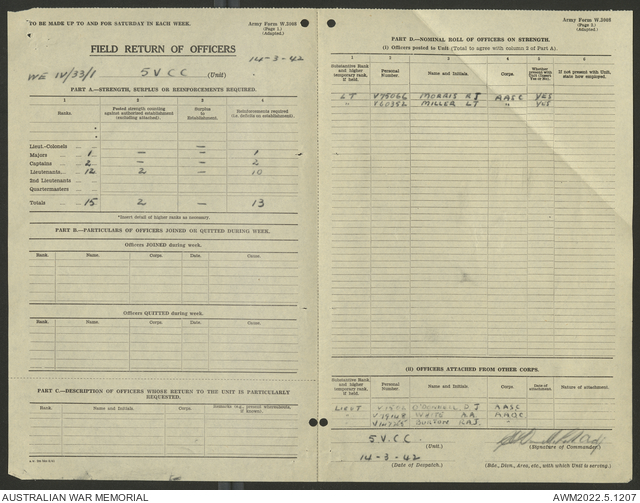 TO BE MADE UP TO AND FOR SATURDAY IN EACH WEEK.
Army Form W.3008
(Page 1.)
(Adapted.)
FIELD RETURN OF OFFICERS
14-3-42
WE IV/33/1
5 V C C (Unit)
PART A.—STRENGTH, SURPLUS OR REINFORCEMENTS REQUIRED.
1 2 3 4
Ranks. Posted strength counting against authorized establishment (excluding attached). Surplus to Establishment. Reinforcements required (i.e. deficits on establishment)
Lieut.-Colonels — —
Majors 1 — — 1
Captains 2 — — 2
Lieutenants 12 2 — 10
2nd Lieutenants
Quartermasters
Totals 15 2 — 13
*Insert detail of higher ranks as necessary.
PART B.—PARTICULARS OF OFFICERS JOINED OR QUITTED DURING WEEK.
Officers JOINED during week.
Rank. Name. Corps. Date. Cause.
Officers QUITTED during week.
Rank. Name. Corps. Date. Cause.
PART C.—DESCRIPTION OF OFFICERS WHOSE RETURN TO THE UNIT IS PARTICULARLY REQUESTED.
Rank. Name and Initials. Corps. Remarks (e.g. present whereabouts, if known).
Army Form W.3008
(Page 2.)
(Adapted.)
PART D.—NOMINAL ROLL OF OFFICERS ON STRENGTH.
(i) Officers posted to Unit (Total to agree with column 2 of Part A).
1 2 3 4 5 6
Substantive Rank and higher temporary rank, if held. Personal Number. Name and Initials. Corps. Whether present with Unit (insert Yes or No). If not present with Unit, state how employed.
LT V75066 MORRIS R J AASC YES
" V60352 MILLER L T " YES
(ii) OFFICERS ATTACHED FROM OTHER CORPS.
Substantive Rank and higher temporary rank, if held. Personal Number. Name and Initials. Corps. Date of attachment. Nature of attachment.
LIEUT O'DONNELL D J AASC
" WHITE A A
" BURTON
5 V. C C. (Unit.)
(Signature of Commander.)
14-3-42
(Date of Despatch.)
(Bde., Divn., Area, etc., with which Unit is serving.)
AUSTRALIAN WAR MEMORIAL
AWM2022.5.1207